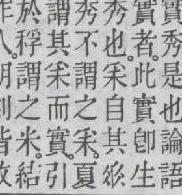 實秀是也論語
實者。此實卽生
秀也。采自其
秀不謂之采。夏
謂其采而實。引
於稃謂之米。結
作